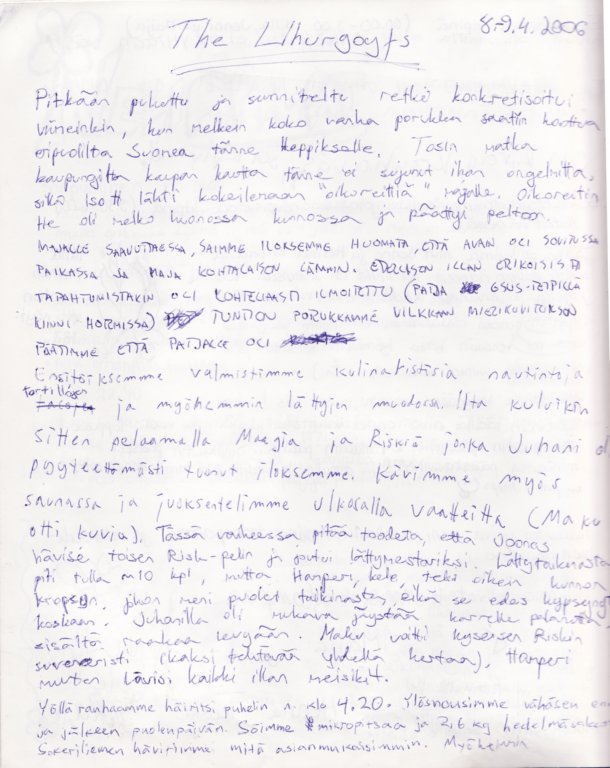 8.-9.4. 2006
The Lhurgoyfs
Pitkään puhuttu ja suunniteltu retki konkretisoitui
viimeinkin, kun melkein koko vanha porukka saatiin koottua
eripuolilta Suomea tänne Happikselle. Tosin matka
kaupungilta kaupan kautta tänne ei sujunut ihan ongelmitta,
sillä Isotti lähti kokeilemaan "oikoreittiä" majalle. Oikoreitin
He oli melko huonossa kunnossa ja päättyi peltoon.
MAJALLE SAAVUTTAESSA, SAIMME ILOKSEMME HUOMATA, ETTÄ AVAIN OLI SOVITUSSA
PAIKASSA JA MAJA KOHTALAISEN LÄMMIN. EDELLISEN ILLAN ERIKOISISTA
TAPAHTUMISTAKIN OLI KOHTELIAASTI ILMOITETTU (PATJA ESUS-TEIPILLÄ
KIINNI HORMISSA) TUNTIEN PORUKKAMME VILKKAAN MIELIKUVITUKSEN
PÄÄTIMME ETTÄ PATJALLE OLI
Ensitöiksemme valmistimme kulinaristisia nautintoja
tortillojen
ja myöhemmin lättyjen muodossa. Ilta kuluikin
sitten pelaamalla Magia ja Riskiä jonka Juhani oli
pyyteettömästi tuonut iloksemme. Kävimme myös
saunassa ja juoksentelimme ulkosalla vaatteitta (Maku
otti kuvia). Tässä vaiheessa pitää todeta, että Joonas
hävisi toisen Risk-pelin ja joutui lättymestariksi. Lättytaikinasta
piti tulla n. 10 kpl, mutta Hamperi, kele, teki oikein kunnon
kropsun, johon meni puolet taikinasta, eikä se edes kypsynyt
koskaan. Juhanilla oli mukava järystää karrelle palanutta
sisältä raakaa levyään. Maku voitti kyseisen Riskin
suvereenisti (kaksi tehtävää yhdellä kertaa), Hamperi
muuten hävisi kaikki illan meisikät.
Yöllä rauhaamme häiritsi puhelin n. klo 4.20. Ylösnousimme vähäsen
ja jälkeen puolenpäivän. Söimme mikropitsaa ja 2,6 kg
Sokeriliemen hävitimme mitä asianmukaisimmin. Myöhemmin